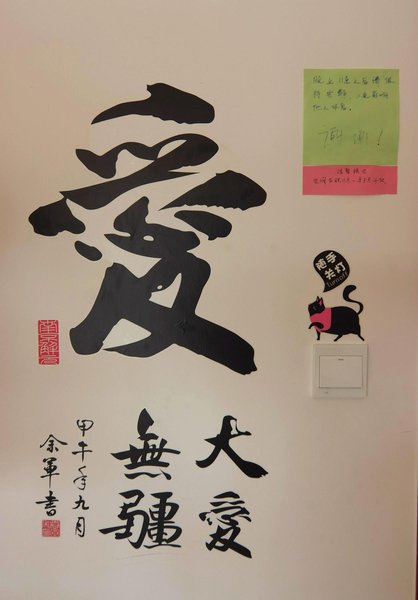 愛
大愛
無疆
甲午年九月
余軍書
晚上11点之后请保
持安静，以免影响
他人休息。
谢谢！
随手
关灯
Turn off